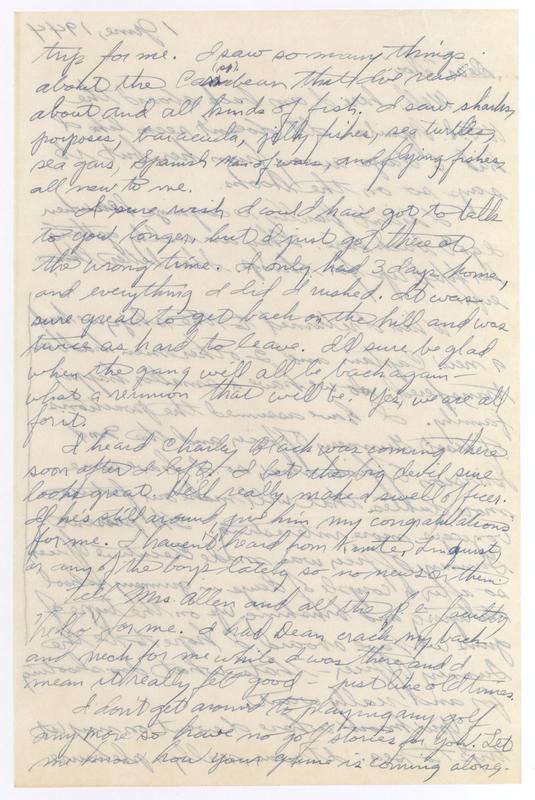 trip for me. I saw so many things
about the Carribean (sp) that I've read
about and all kinds of fish. I saw sharks,
porpoises, barracuda, jelly fishes, sea turtles,
sea gars, Spanish Man of wars, and flying fishes
all new to me.
I sure wish I could have got to talk
to you longer, but I just got there at
the wrong time. I only had 3 days home,
and everything I did I rushed. It was
sure great to get back on the hill and was
twice as hard to leave. I'll sure be glad
when the gang will all be back again —
what a reunion that will be. Yes, we are all
for it.
I heard Charley Black was coming there
soon after I left. I bet the big devil sure
looks great. He'll really make a swell officer.
If he's still around, give him my congratulations
for me. I haven't heard from Linquist,
or any of the boys lately so no news on them.
Tell Mrs. Allen and all the P.E. faculty
"hello" for me. I had Dean crack my back
and neck for me while I was there and I
mean it really felt good — just like old times.
I don't get around to playing any golf
any more so have no golf stories for you. Let
me know how your game is coming along.